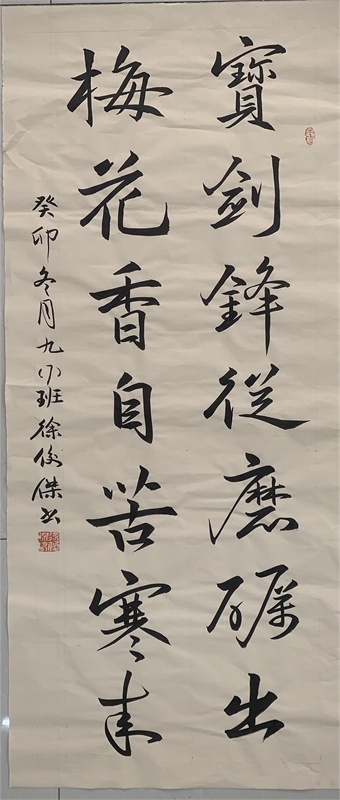 寶劍鋒從磨礪出
梅花香自苦寒来
癸卯冬月九八班徐俊傑书